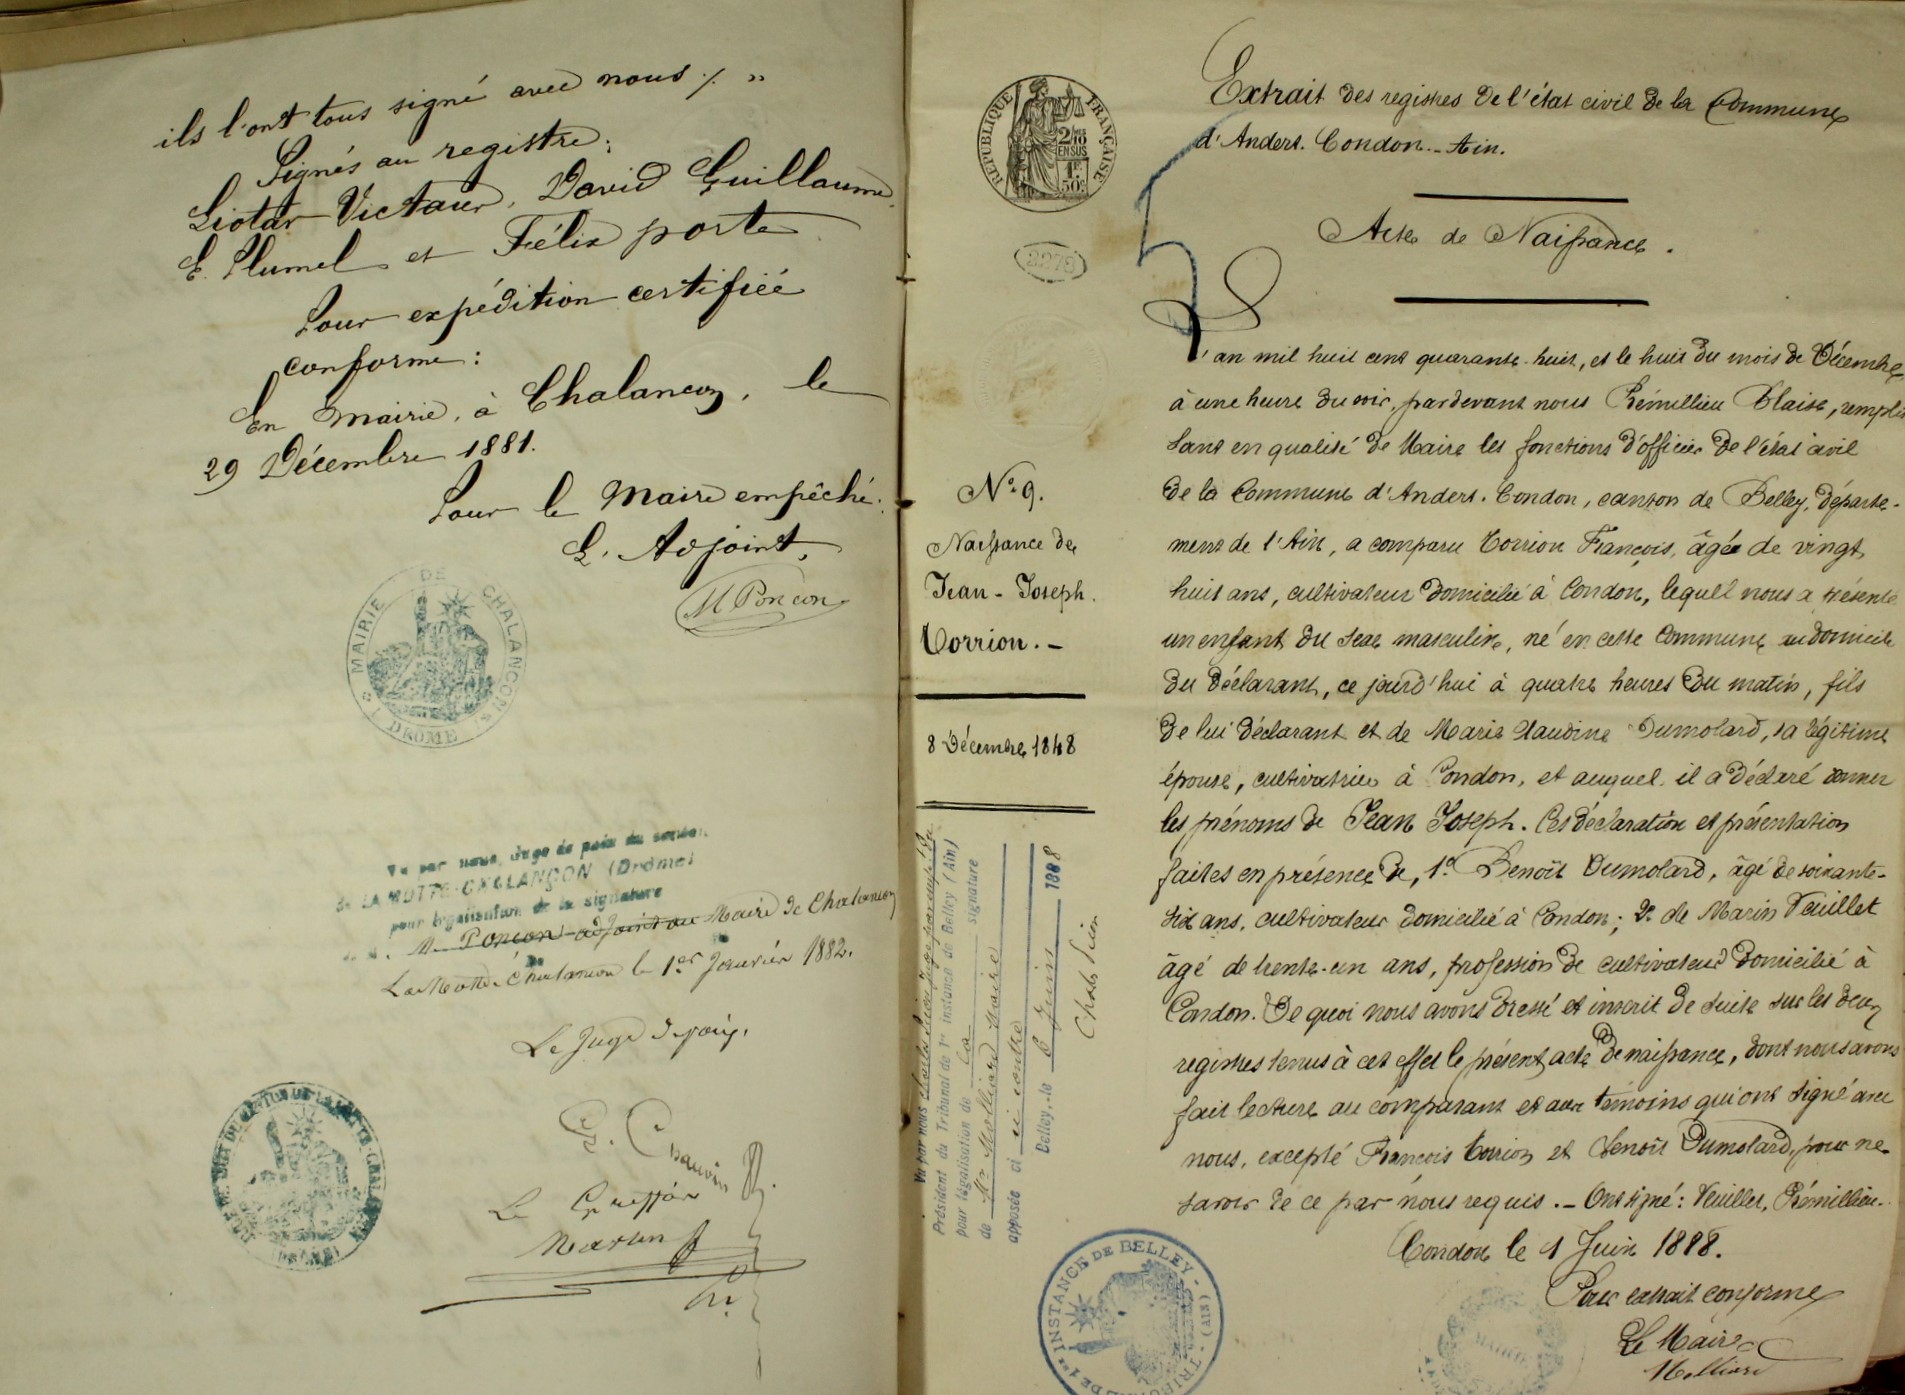 ils l'ont tous signé avec nous ./. "
Signés au registre:
Liotar Victaur, David Guillaume,
E. Plumel et Félix porte
Pour expédition certifiée
conforme:
En Mairie, à Chalancon, le
29 Décembre 1881.
Pour le Maire empêché:
L. Adjoint,
M Poncon
MAIRIE DE CHALANCON
DROME
Vu par nous, Juge de paix du canton
de LA MOTTE-CHALANÇON (Drôme)
pour légalisation de la signature
de M. Poncon adjoint au Maire de Chalancon
La Motte Chalancon le 1er Janvier 1882.
Le Juge de paix,
Chauvin
Le Greffier
(DROME)
REPUBLIQUE FRANÇAISE
2/10
EN SUS
1F
50c
2278
Extrait des registres de l'état civil de la Commune
d'Andert-Condon - Ain.
Acte de Naissance.
N° 9.
Naissance de
Jean-Joseph.
Corrion. -
8 Décembre 1848
L'an mil huit cent quarante-huit, et le huit du mois de Décembre
à une heure du soir, pardevant nous Rémillieu Blaise, remplis
sant en qualité de Maire les fonctions d'officier de l'état civil
de la Commune d'Andert-Condon, canton de Belley, départe-
ment de l'Ain, a comparu Corrion François, âgé de vingt
huit ans, cultivateur domicilié à Condon, lequell nous a présenté
un enfant du sexe masculin, né en cette Commune au domicile
du déclarant, ce jourd'hui à quatre heures du matin, fils
de lui déclarant et de Marie Claudine Dumolard, sa légitime
épouse, cultivatrice à Condon, et auquel il a déclaré donner
les prénoms de Jean Joseph. Ces déclaration et présentation
faites en présence de, 1° Benoît Dumolard, âgé de soixante-
six ans, cultivateur domicilié à Condon; 2° de Marin Veuillet
âgé de trente-un ans, profession de cultivateur domicilié à
Condon. De quoi nous avons dressé et inscrit de suite sur les deux
registres tenus à cet effet le présent acte de naissance, dont nous avons
fait lecture au comparant et aux témoins qui ont signé avec
nous, excepté François Corrion et Benoît Dumolard, pour ne
savoir de ce par nous requis. - Ont signé: Veuillet, Rémillieu.
Condon le 1 Juin 1888.
Pour extrait conforme
Le Maire
Molliard
Vu par nous Charles
Président du Tribunal de 1re instance de Belley (Ain)
pour légalisation de la signature
de Mr Molliard Maire
apposée ci ci contre
Belley, le 6 Juin 1888
TRIBUNAL DE 1ère INSTANCE DE BELLEY - (AIN)
MAIRIE